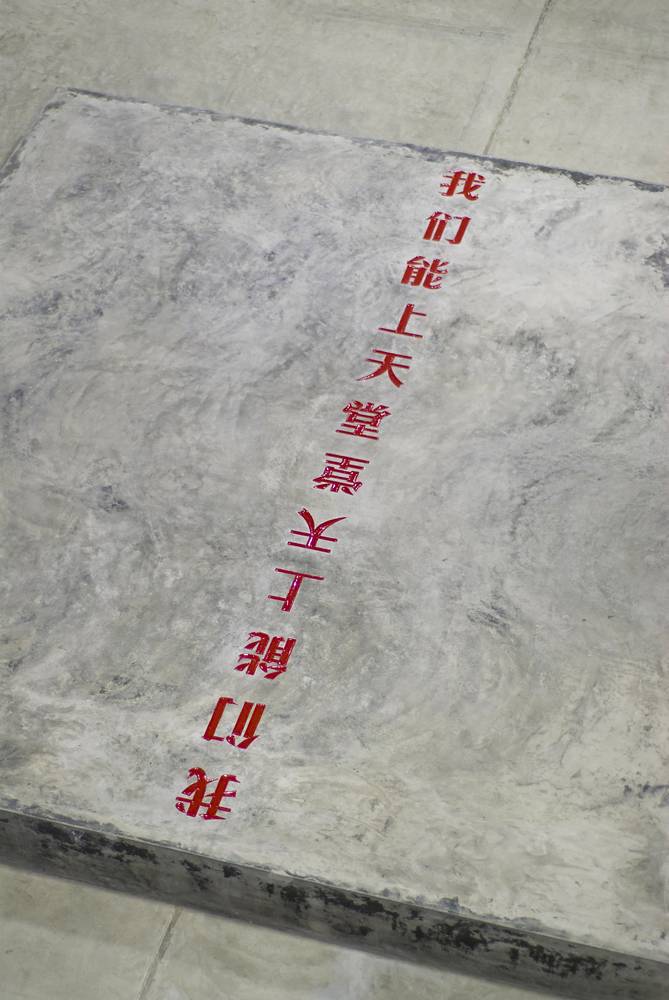 我们能上天堂
我们能上天堂